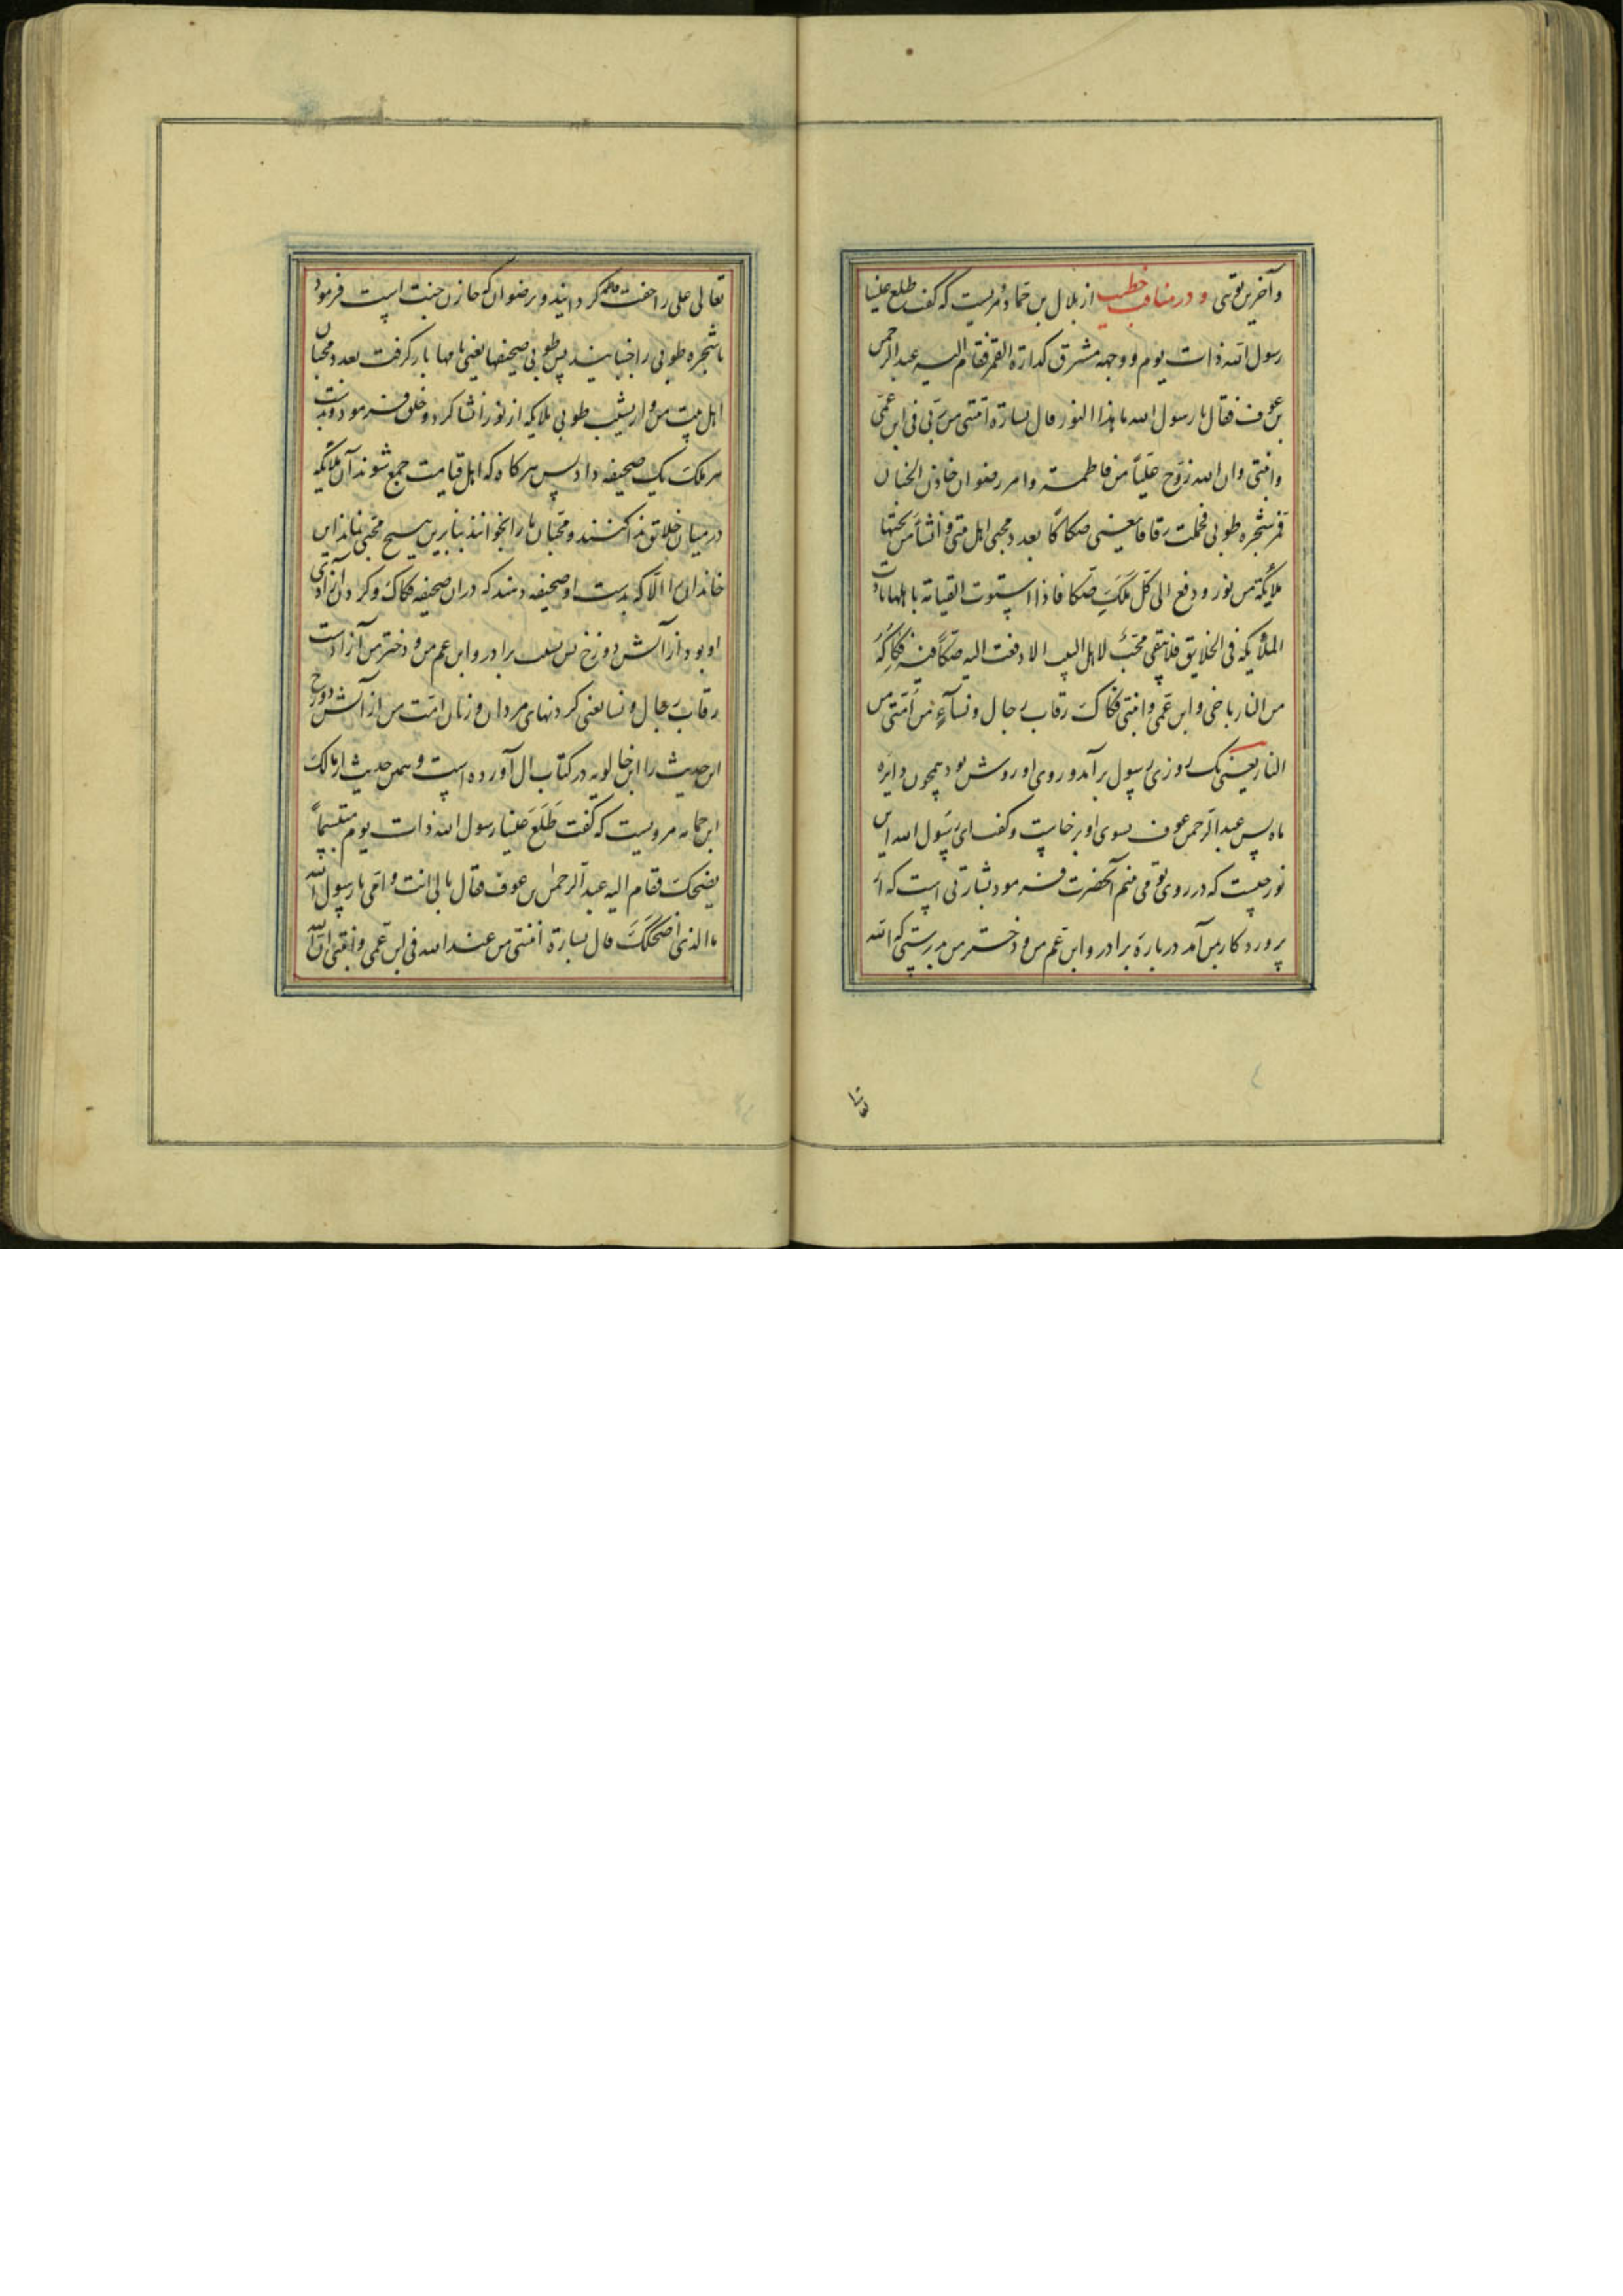 وآخرین توئی و در مناقب خطیب از بلال بن حماد مرویست که گفت طلع علینا
رسول الله ذات یوم و وجهه مشرق کدارة القمر فقام الیه عبد الرحمن
بن عوف فقال یا رسول الله ما هذا النور قال بشارة اتتنی من ربی فی ابن عمی
وابنتی وان الله زوج علیاً من فاطمة وامر رضوان خازن الجنان
فهز شجره طوبی فحملت رقاقا یعنی صکاکا بعدد محبی اهل بیتی وانشأ من تحتها
ملایکة من نور و دفع الی کل ملک صکا فاذا استوت القیامة باهلها نادت
الملایکه فی الخلایق فلا یبقی محب لاهل البیت الا دفعت الیه صکا فیه فکاکه
من النار باخی و ابن عمی و ابنتی فکاک رقاب رجال و نسآء من امتی من
النار یعنی یک روزی رسول برآمد و روی او روشن بود همچون دایره
ماه پس عبد الرحمن عوف بسوی او برخاست و گفت ای رسول الله این
نور چیست که در روی تو می بینم آنحضرت فرمود بشارتی است که از
پروردکار بمن آمد در باره برادر و ابن عم من و دختر من بدرستی که الله
تعالی علی را جفت فاطمه کردانید و بر رضوان که خازن جنت است فرمود
تا شجره طوبی را جنبانید پس طوبی صحیفها یعنی نامها بار کرفت بعدد محبان
اهل بیت من و از شیب طوبی ملایکه از نور انشا کرد و خلق فرمود و بدست
هر ملک یک صحیفه داد پس هر کاه که اهل قیامت جمع شوند آن ملایکه
در میان خلایق ندا کنند و محبان ما را بخوانند بنابرین هیچ محبی نماند این
خاندان را الا که بدست او صحیفه دهند که دران صحیفه فکاک و کردن آزادی
او بود از آتش دوزخ پس بسبب برادر و ابن عم من و دختر من آزادست
رقاب رجال و نسا یعنی کردنهای مردان و زنان امت من از آتش دوزخ
این حدیث را ابن خالویه در کتاب آل آورده است و همین حدیث از مالک
ابن حمامه مرویست که گفت طلع علینا رسول الله ذات یوم متبسماً
یضحک فقام الیه عبد الرحمن بن عوف فقال بابی انت و امی یا رسول الله
ما الذی اضحکک قال بشارة اتتنی من عند الله فی ابن عمی و ابنتی ان الله